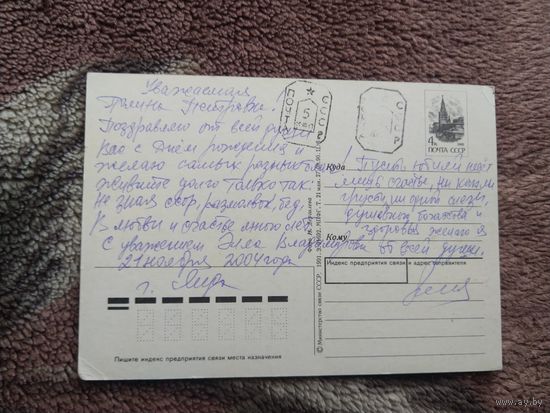 Уважаемая
Галина Петровна!
Поздравляю от всей души
Вас с Днём рождения и
желаю самых разных благ!
Живите долго только так:
Не зная ссор, размолвок, бед,
В любви и счастье много лет.
С уважением Элла Владимировна
21 ноября 2004 года
г. Лида
СССР
ПОЧТА
5
СССР
4к
ПОЧТА СССР
Куда
Пусть юбилей несёт
лишь счастье, ни капли
грусти, ни одной слезы,
душевного богатства и
здоровья желаю я
Кому
от всей души.
Индекс предприятия связи и адрес отправителя
© Министерство связи СССР. 1991.
Пишите индекс предприятия связи места назначения
www.ay.by